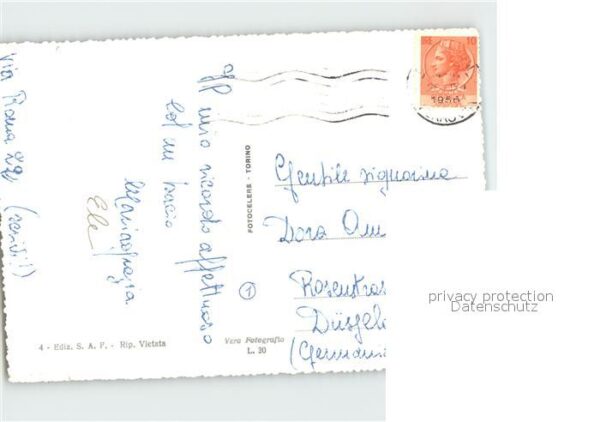 Via Roma 29
(scrivi!)
aff mio ricordo affettuoso
ed un bacio
Mariagrazia
Ele
FOTOCELERE - TORINO
LIRE 10
1956
Gentile signorina
Dora
Rosenstras
Düssel
(Germania
1
4 - Ediz. S. A. F. - Rip. Vietata
Vera Fotografia
L. 20
privacy protection
Datenschutz